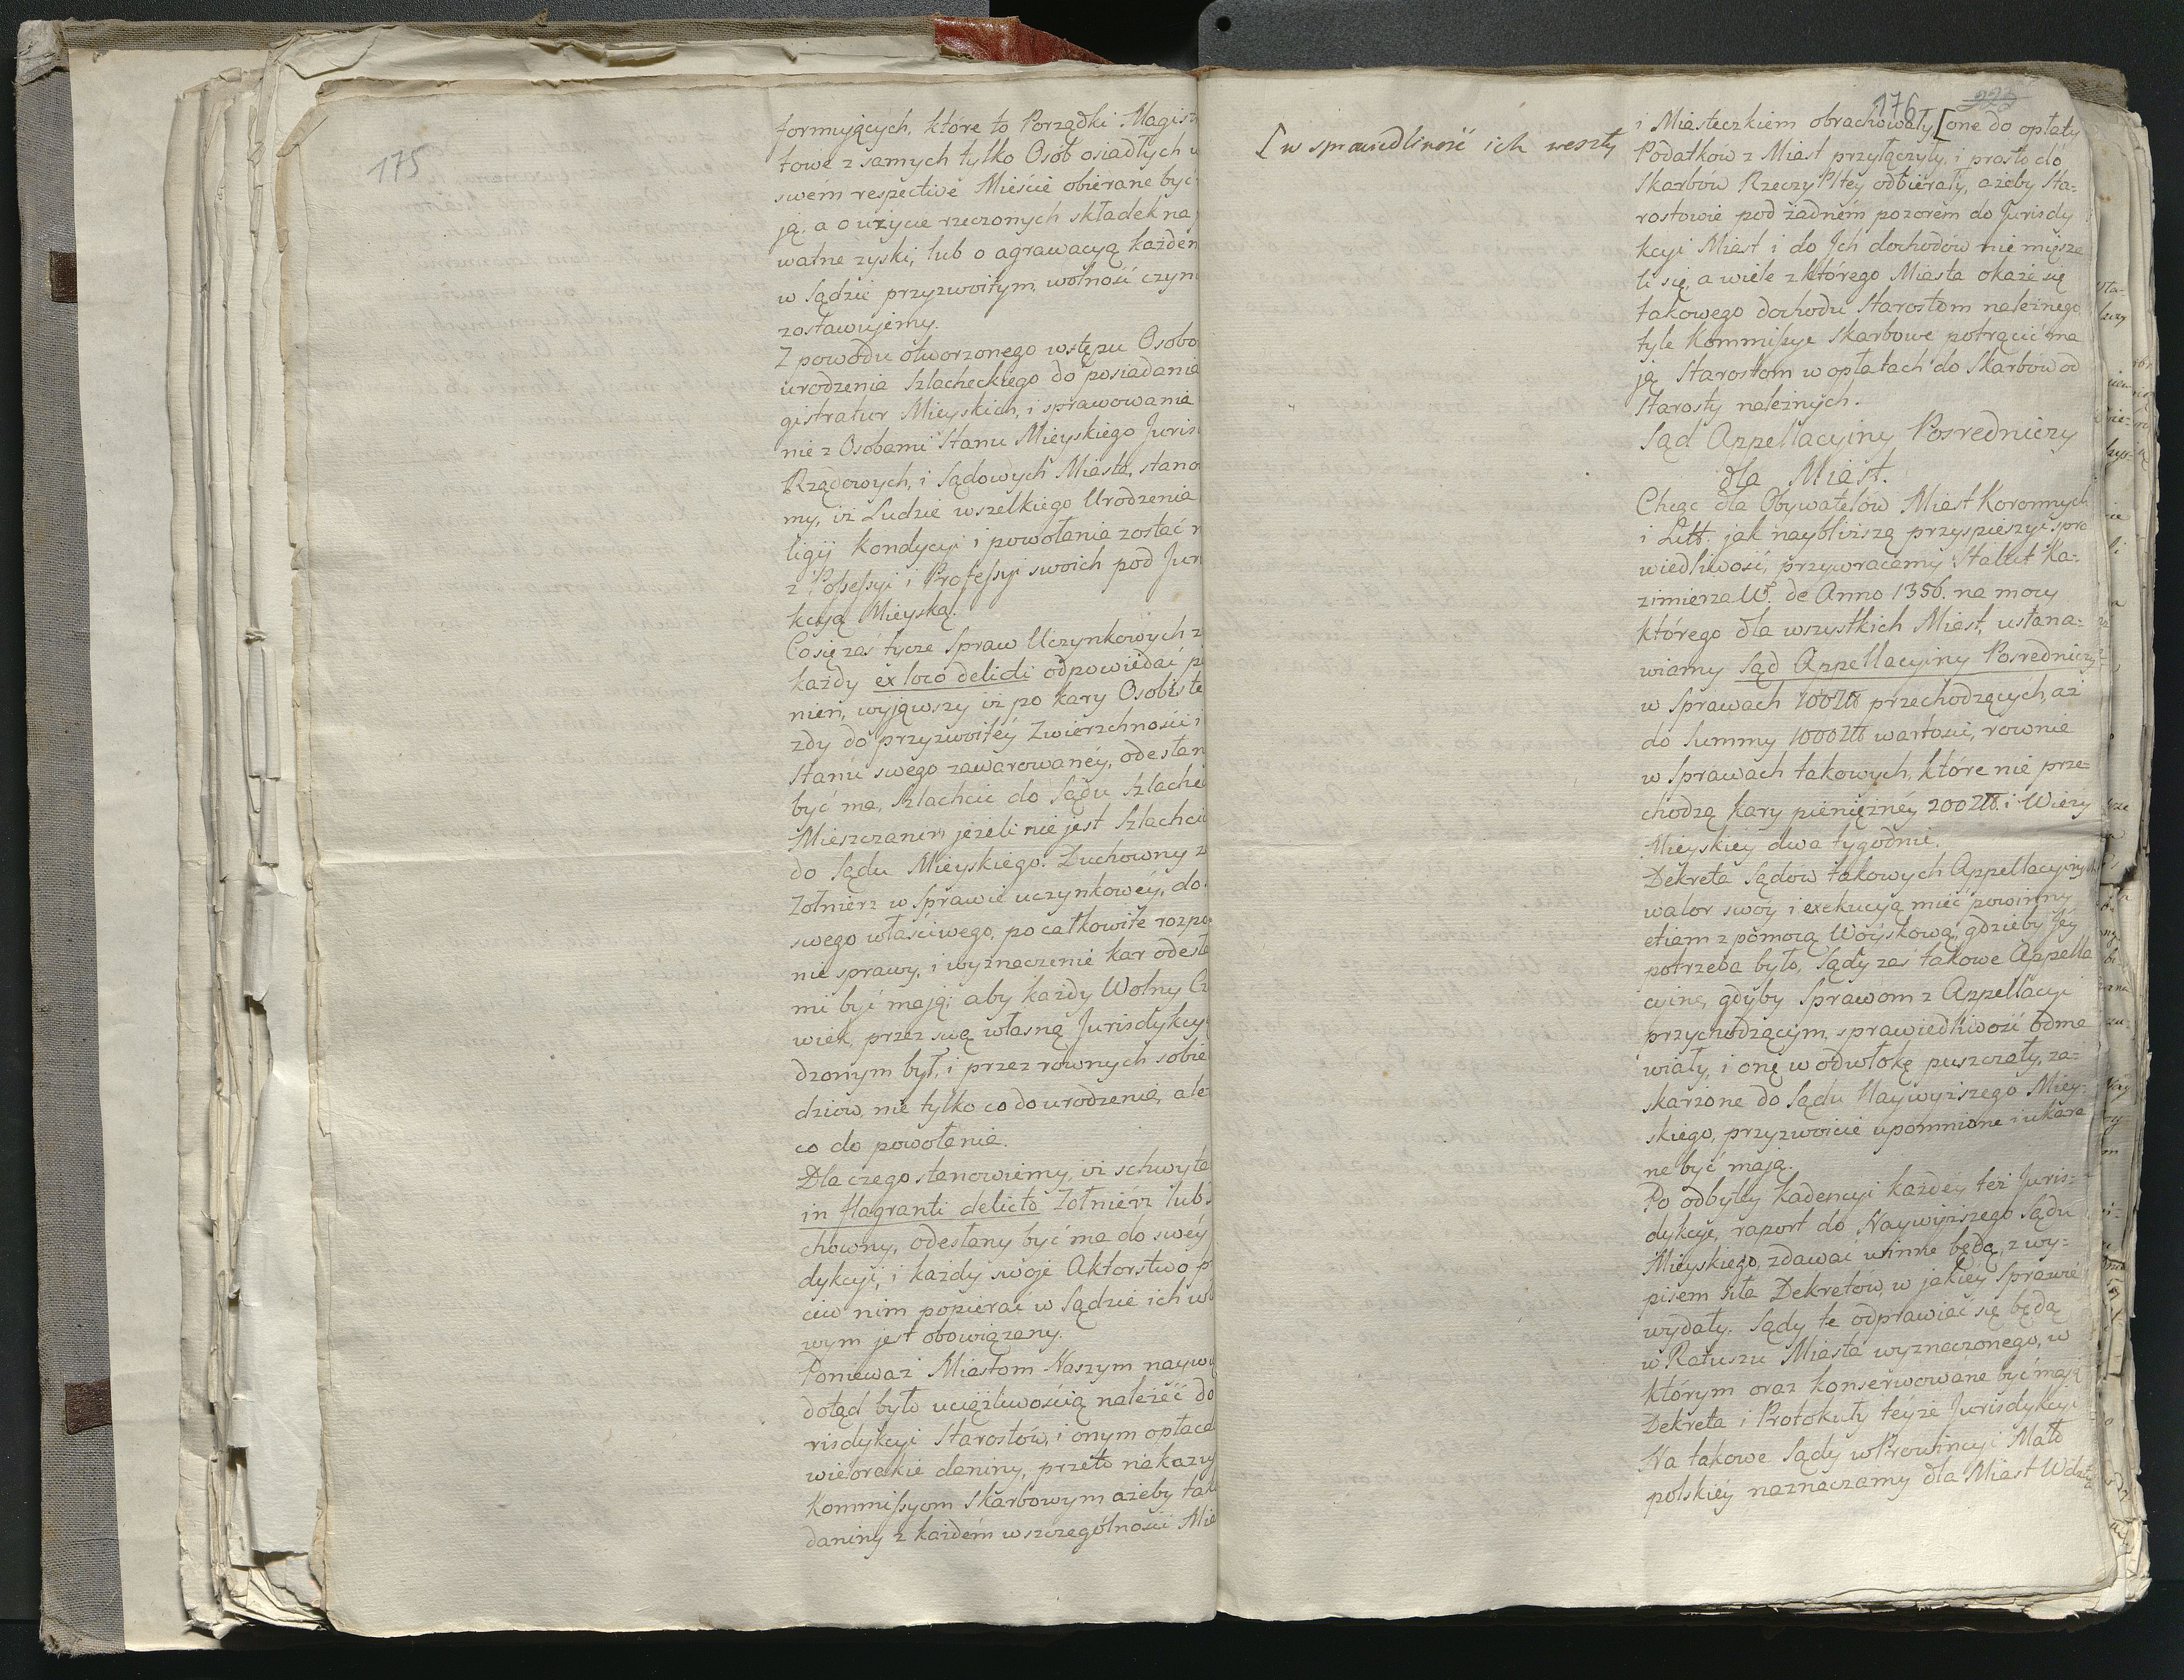 175
formujących, które to Porządki Magis
towe z samych tylko Osób osiadłych w
swem respective Mieście obierane być
ją. a o użycie rzeczonych składek na
watne zyski, lub o agrawacyą każdem
w Sądzie przyzwoitym, wolność czyn
zostawujemy.
Z powodu otworzonego wstępu Osobo
urodzenia Szlacheckiego do posiadania
gistratur Mieyskich, i sprawowania
nie z Osobami Stanu Mieyskiego Juris
Rządowych, i Sądowych Miasta, stano
my, iż Ludzie wszelkiego Urodzenia
ligij kondycyi i powołania zostać m
z Possessyi i Professyi swoich pod Jur
kcyą Mieyską.
Co się zaś tycze Spraw Uczynkowych z
każdy ex loco delicti odpowiedać po
nien, wyjąwszy iż po kary Osobiste
zdy do przyzwoitéy Zwierzchności i
Stanu swego zawarowanéy, odesłan
być ma, Szlachcic do Sądu Szlachec
Mieszczanin jeżeli nie jest Szlachcic
do Sądu Mieyskiego. Duchowny z
Żołnierz w Sprawie uczynkowéy, do
swego właściwego, po całkowite rozpo
nie sprawy, i wyznaczenie kar odesła
mi być mają; aby każdy Wolny Cz
wiek, przez swą własną Jurisdykcyą
dzonym był, i przez równych sobie
dziów, nie tylko co do urodzenia, ale
co do powołania.
Dla czego stanowiemy, iż schwyta
in flagranti delicto Żołnierz lub
chowny, odesłany być ma do swéy
dykcyi, i każdy swoje Aktorstwo p
ciw nim popierać w Sądzie ich wł
wym jest obowiązany.
Ponieważ Miastom Naszym naywię
dotąd było uciążliwością należeć do
risdykcyi Starostów, i onym opłaca
wielorakie daniny, przeto nakazuj
Kommissyom Skarbowym ażeby tak
daniny z każdém wszczególności Mia
176
223
[w sprawiedliwość ich weszły
i Miasteczkiem obrachowały, [one do opłaty
Podatków z Miast przyłączyły, i prosto do
Skarbów Rzeczy Pltey odbierały, ażeby Sta=
rostowie pod żadném pozorém do Jurisdy
kcyi Miast i do Ich dochodów nie miesza
li się, a wiele z którego Miasta okaże się
takowego dochodu Starostom należnego
tyle Kommissye Skarbowe potrącić ma
ją Starostom w opłatach do Skarbów od
Starosty należnych.
Sąd Appellacyiny Posredniczy
dla Miast.
Chcąc dla Obywatelów Miast Koronnych
i Litt: jak naybliższą przyspieszyć spra
wiedliwość, przywracamy Statut Ka=
zimierza W. de Anno 1356. na mocy
którego dla wszystkich Miast, ustana=
wiamy Sąd Appellacyiny Posredniczy
w Sprawach 100 Zł przechodzących, aż
do Summy 1000 Zł wartości, równie
w Sprawach takowych, które nie prze=
chodzą kary pieniężnéy 200 Zł. i Wieży
Mieyskiey dwa tygodnie.
Dekreta Sądów takowych Appellacyinych
walor swóy i exekucyą mieć powinny
etiam z pomocą Woyskową, gdzieby Jéy
potrzeba było, Sądy zaś takowe Appella
cyine, gdyby Sprawom z Appellacyi
przychodzącym, sprawiedliwość odma
wiały, i onę w odwłokę puszczały, za=
skarżone do Sądu Naywyższego Miey=
skiego, przyzwoicie upomnione i ukara
ne być mają.
Po odbytéy kadencyi każdey téż Juris=
dykcye, raport do Naywyższego Sądu
Mieyskiego, zdawać winne będą, z wy=
pisem ila Dekretów, w jakiéy Sprawie
wydały. Sądy te odprawiać się będą
w Ratuszu Miasta wyznaczonego, w
którym oraz konserwowane być mają
Dekreta i Protokuły téyże Jurisdykcyi
Na takowe Sądy w Prowincyi Mało
polskiéy naznaczamy dla Miast Wdztw